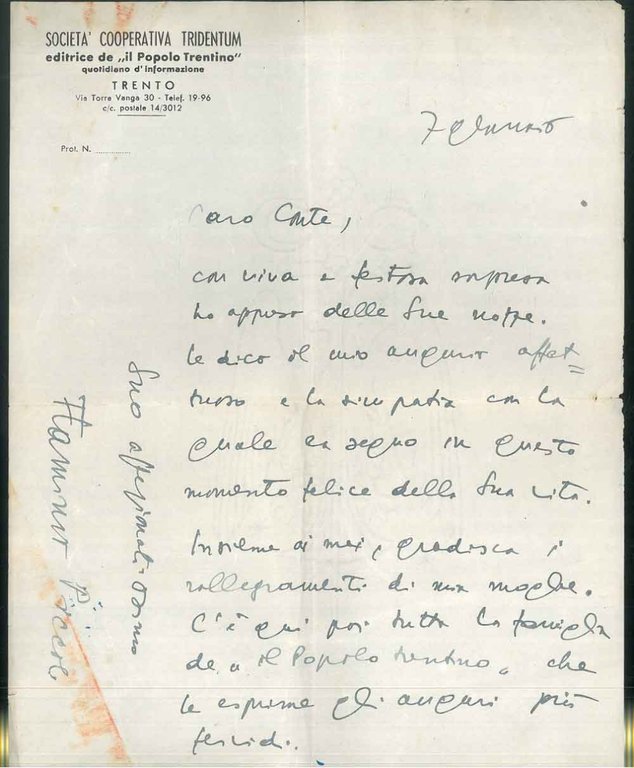 SOCIETA' COOPERATIVA TRIDENTUM
editrice de „il Popolo Trentino"
quotidiano d'informazione
TRENTO
Via Torre Vanga 30 - Telef. 19-96
c/c. postale 14/3012
Prot. N. ..............
7 gennaio
Caro Conte,
con viva e festosa sorpresa
ho appreso delle Sue nozze.
Le dico il mio augurio affet=
tuoso e la simpatia con la
quale La seguo in questo
momento felice della Sua vita.
Insieme ai miei, gradisca i
rallegramenti di mia moglie.
C'è qui poi tutta la famiglia
de „il Popolo trentino„ che
Le esprime gli auguri più
fervidi.
Suo affezionatissimo
Flaminio Piccoli